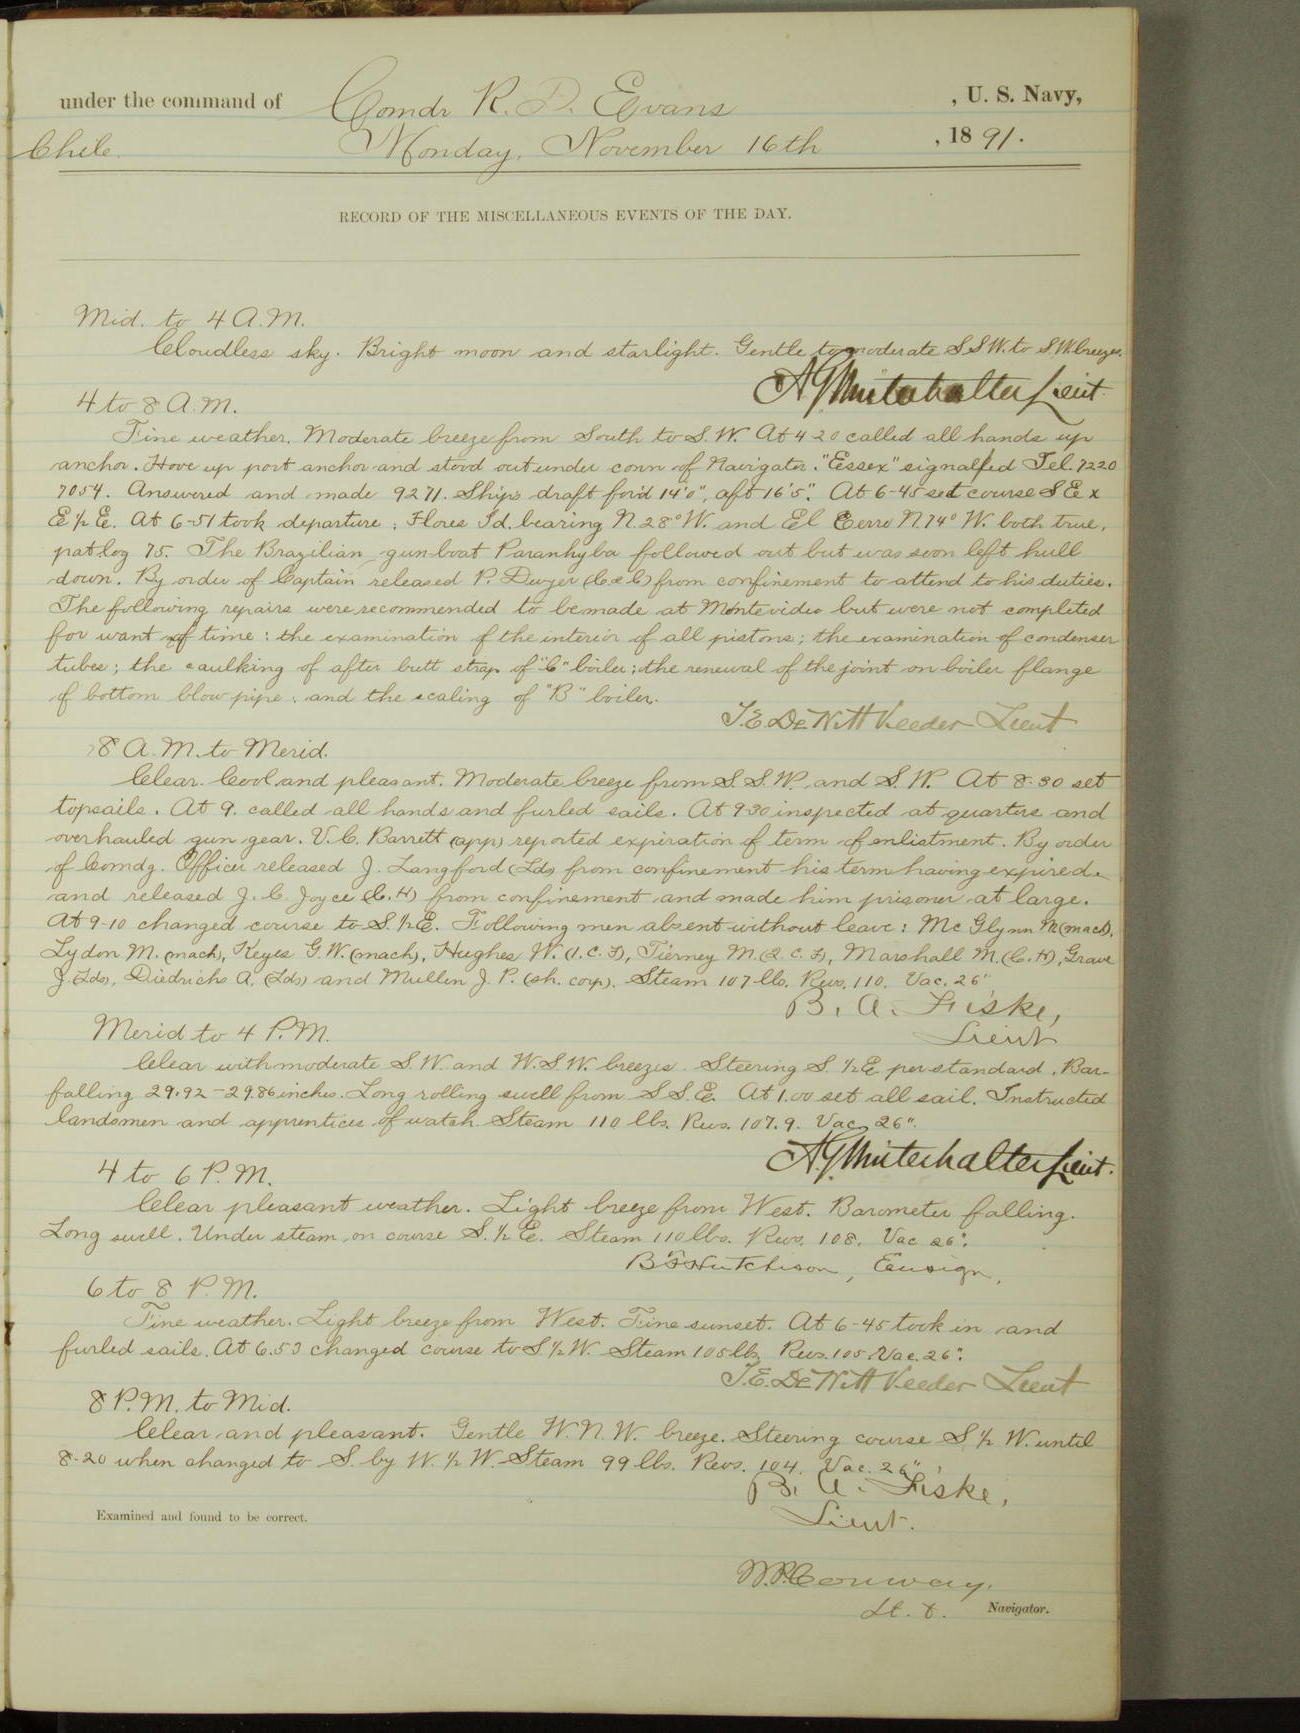 under the command of Comdr R. D. Evans , U. S. Navy,
Chile. Monday, November 16th , 1891.
RECORD OF THE MISCELLANEOUS EVENTS OF THE DAY.
Mid. to 4 A.M.
Cloudless sky. Bright moon and starlight. Gentle to moderate S.S.W. to S.W. breezes.
A G Winterhalter Lieut.
4 to 8 A.M.
Fine weather. Moderate breeze from South to S.W. At 4 20 called all hands up
anchor. Hove up port anchor and stood out under conn of Navigator. "Essex" signalled Tel. 7220
7054. Answered and made 9271. Ship's draft for'd 14'0", aft 16'5". At 6-45 set course S E x
E ½ E. At 6-51 took departure; Flores Id. bearing N. 28° W. and El Cerro N 74° W. both true,
pat log 75. The Brazilian gun-boat Paranhyba followed out but was soon left hull
down. By order of Captain released P. Dwyer (C & C) from confinement to attend to his duties.
The following repairs were recommended to be made at Montevideo but were not completed
for want of time: the examination of the interior of all pistons; the examination of condenser
tubes; the caulking of after butt strap of "C" boiler; the renewal of the joint on boiler flange
of bottom blow pipe; and the scaling of "B" boiler.
T.E. DeWitt Veeder Lieut
8 A.M. to Merid.
Clear. Cool and pleasant. Moderate breeze from S.S.W. and S.W. At 8-30 set
topsails. At 9. called all hands and furled sails. At 9-30 inspected at quarters and
overhauled gun gear. V.C. Barrett (app) reported expiration of term of enlistment. By order
of Comdg. Officer released J. Langford (Lds) from confinement his term having expired.
and released J. C. Joyce (C.H) from confinement and made him prisoner at large.
At 9-10 changed course to S. ½ E. Following men absent without leave: McGlynn M (mach),
Lydon M. (mach), Keyes G.W. (mach), Hughes W. (1.C.F), Tierney M. (2.C.F), Marshall M. (C.H), Grave
J. (Lds), Diedrichs A. (Lds) and Mullen J. P. (sh. corp). Steam 107 lbs. Revs. 110. Vac. 26"
B. A. Fiske,
Lieut
Merid to 4 P.M.
Clear with moderate S.W. and W.S.W. breezes. Steering S. ½ E. per standard. Bar-
falling 29.92 - 29.86 inches. Long rolling swell from S S.E. At 1.00 set all sail. Instructed
landsmen and apprentices of watch. Steam 110 lbs. Revs. 107.9. Vac. 26".
A G Winterhalter Lieut.
4 to 6 P.M.
Clear pleasant weather. Light breeze from West. Barometer falling.
Long swell. Under steam on course S. ½ E. Steam 110 lbs. Revs. 108. Vac 26".
B F Hutchison, Ensign,
6 to 8 P.M.
Fine weather. Light breeze from West. Fine sunset. At 6-45 took in and
furled sails. At 6.53 changed course to S ½ W. Steam 105 lbs. Revs. 105 Vac. 26".
T.E. DeWitt Veeder Lieut
8 P.M. to Mid.
Clear and pleasant. Gentle W.N.W. breeze. Steering course S. ½ W. until
8-20 when changed to S. by W. ½ W. Steam 99 lbs. Revs. 104. Vac. 26"
B. A. Fiske,
Lieut.
Examined and found to be correct.
W.P. Conway,
Lt. & Navigator.